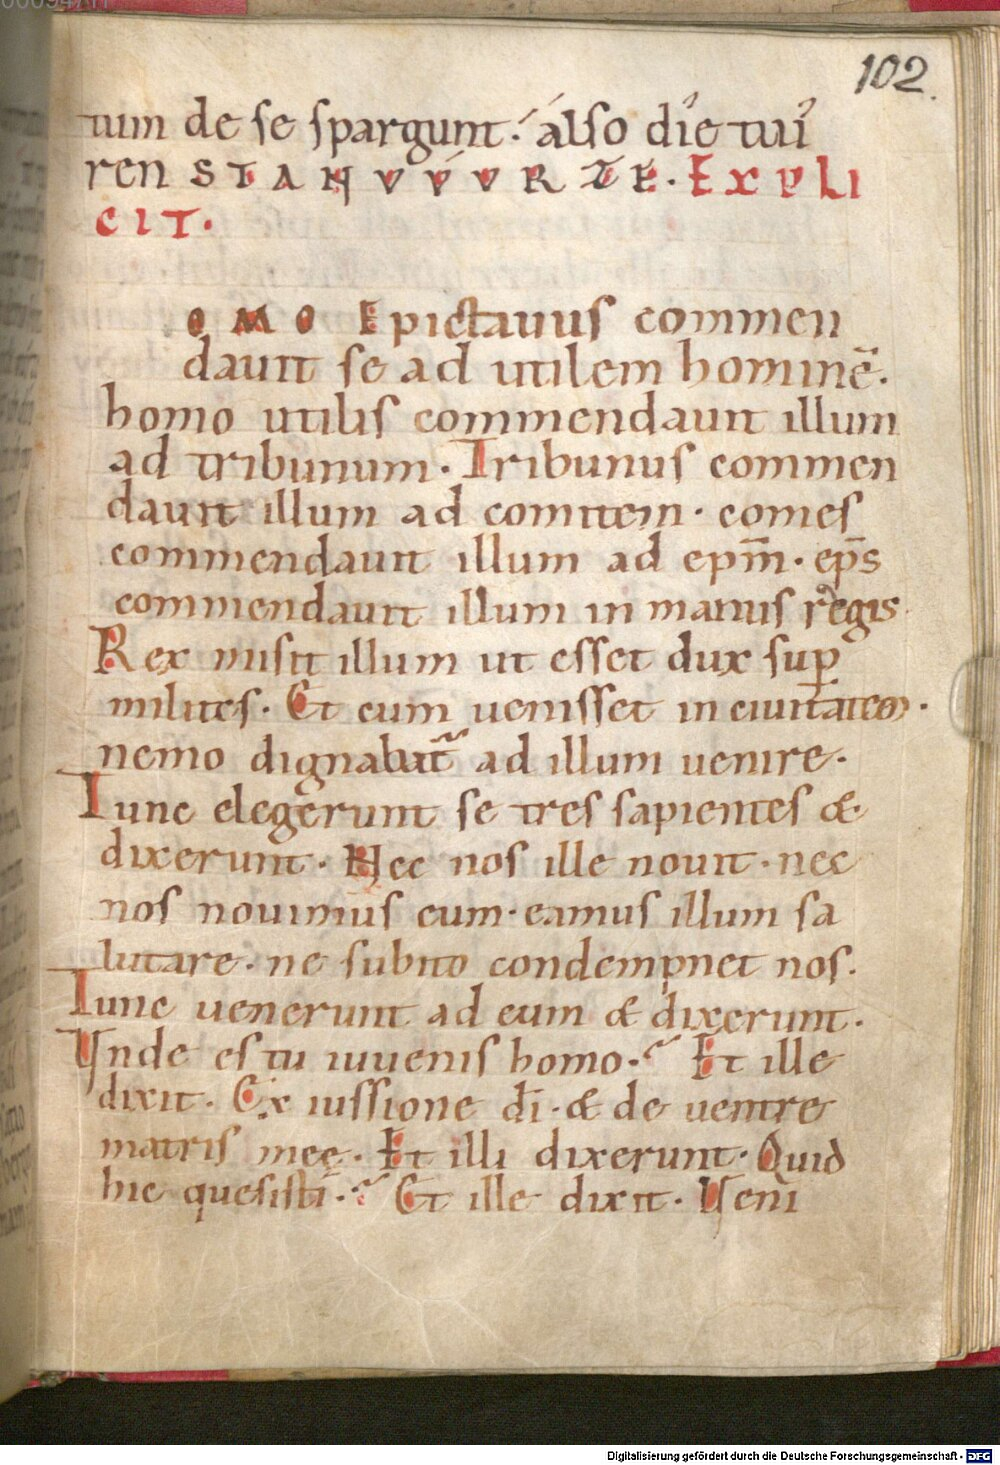 102.
tum de se spargunt. álso dîe tuuî
ren STANVVVRTE. EXPLI
CIT.
OMO Epictauus commen
dauit se ad utilem hominē.
homo utilis commendauit illum
ad tribunum. Tribunus commen
dauit illum ad comitem. comes
commendauit illum ad ep̄m. ep̄s
commendauit illum in manus regis.
Rex misit illum ut esset dux sup
milites. Et cum uenisset in ciuitatem.
nemo dignabat᷑ ad illum uenire.
Tunc elegerunt se tres sapientes &
dixerunt. Nec nos ille nouit. nec
nos nouimus eum. eamus illum sa
lutare. ne subito condempnet nos.
Tunc uenerunt ad eum & dixerunt.
Unde es tu iuuenis homo.? Et ille
dixit. Ex iussione d̄i. & de uentre
matris meę. Et illi dixerunt. Quid
hic quesisti.? Et ille dixit. Ueni
Digitalisierung gefördert durch die Deutsche Forschungsgemeinschaft - DFG